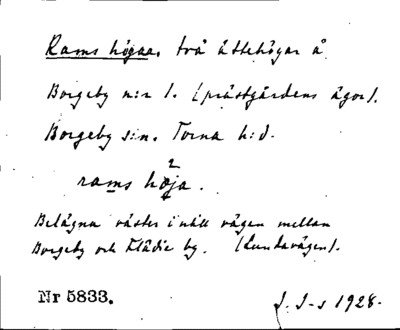 Rams högna. två ättehögar å
Borgeby n:r 1. (prästgårdens ägor).
Borgeby s:n. Torna h:d.
2
rams höja.
Belägna väster i mått vägen mellan
Borgeby och Flädie by. (Lundavägen).
Nr 5833.
J. I-s 1928.